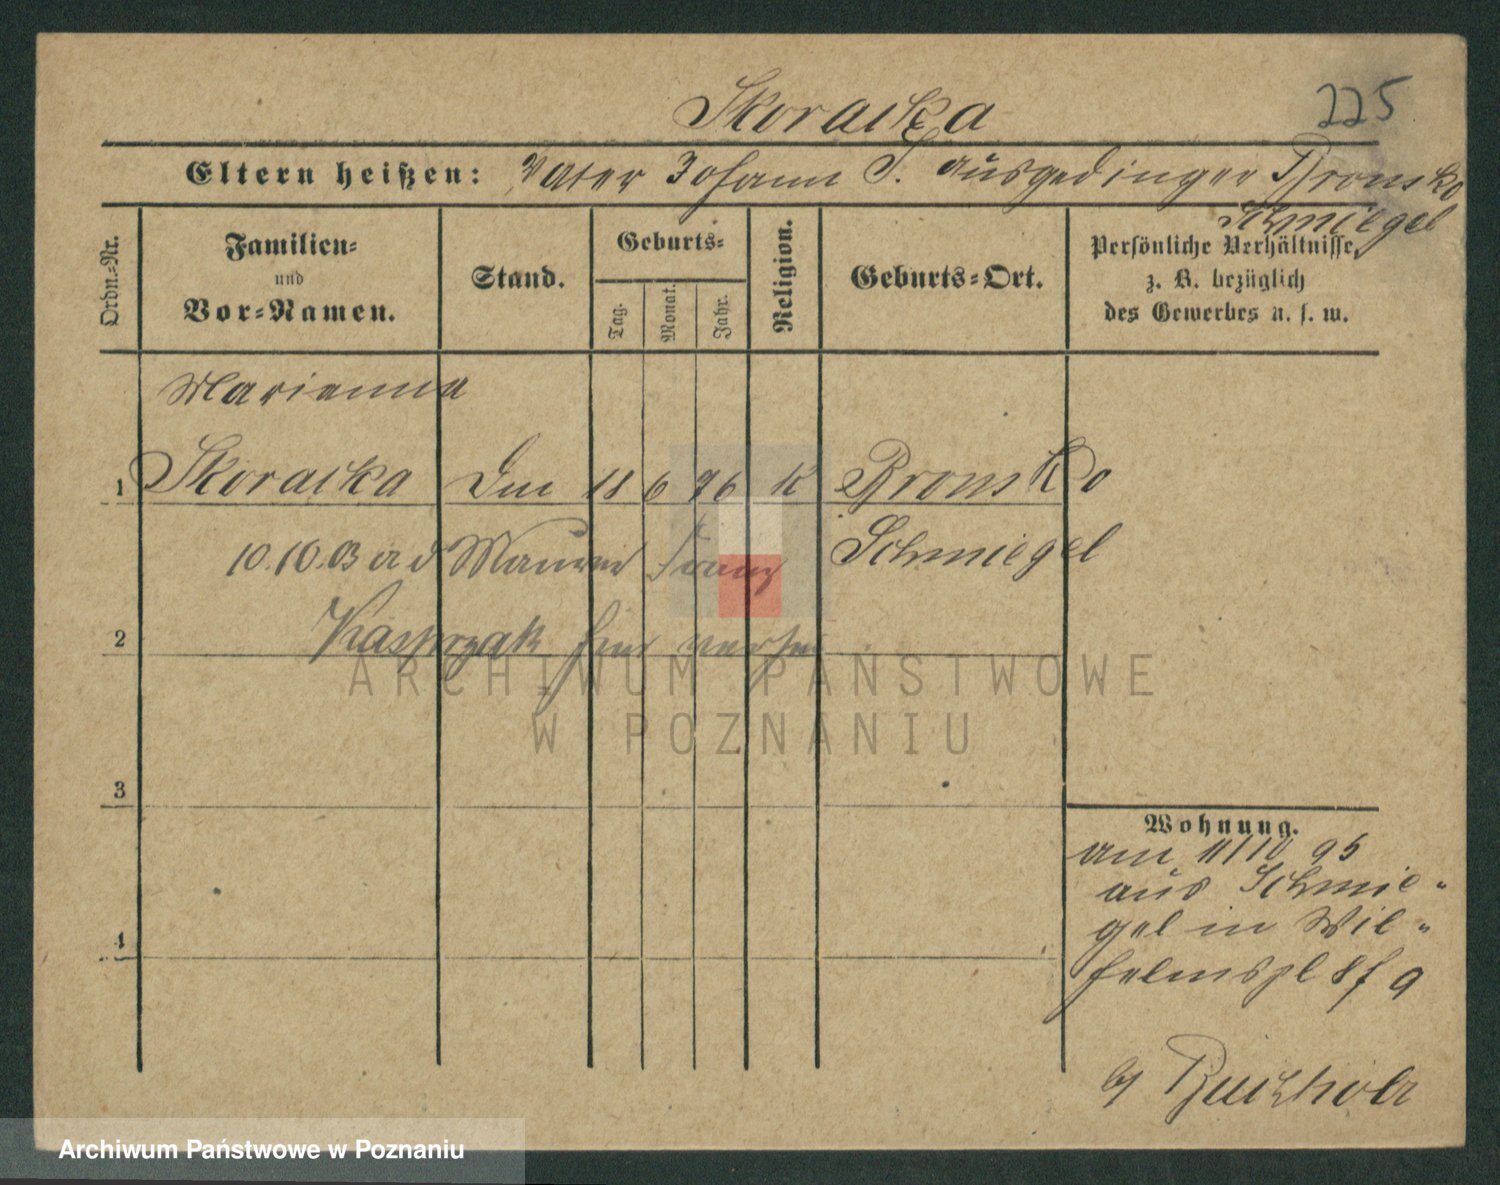 Skoracka
225
Eltern heißen: Vater Johann S. Ausgedinger Bronsko
Schmiegel
Ordn.-Nr.
Familien-
und
Vor-Namen.
Stand.
Geburts-
Tag.
Monat.
Jahr.
Religion.
Geburts-Ort.
Persönliche Verhältnisse,
z. B. bezüglich
des Gewerbes u. s. w.
Marianna
1 Skoracka 18 6 76 K Bronsko
10.10.03 a d Maurer Franz Schmiegel
2 Kasprzak hier verh
ARCHIWUM PAŃSTWOWE
W POZNANIU
3
Wohnung.
am 11/10 95
aus Schmie-
gel in Wil-
4
helmspl 8 f 9
by Buchholz
Archiwum Państwowe w Poznaniu